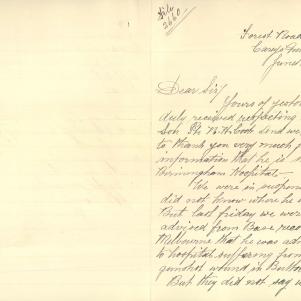 File
2660
Forest Road
June
Dear Sir
Yours of yest
duly received respecting
Son Pte
send
to thank you very much f
information that he is
Birmingham Hospital -
We were in suspen
did not know where he
But last friday we were
advised from Base
Melbourne that he was ad
to hospital suffering from
gunshot wound in Butto
But they did not say w